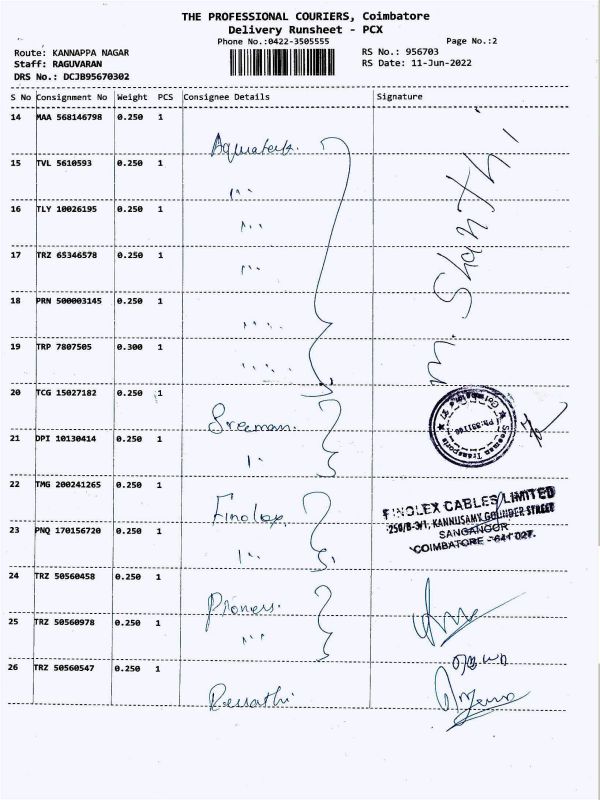 THE PROFESSIONAL COURIERS, Coimbatore
Delivery Runsheet - PCX
Phone No.:0422-3505555
Page No.:2
Route: KANNAPPA NAGAR
RS No.: 956703
Staff: RAGUVARAN
RS Date: 11-Jun-2022
DRS No.: DCJB95670302
S No Consignment No Weight PCS Consignee Details Signature
14 MAA 568146798 0.250 1
15 TVL 5610593 0.250 1
16 TLY 10026195 0.250 1
17 TRZ 65346578 0.250 1
18 PRN 500003145 0.250 1
19 TRP 7807505 0.300 1
M. Shanthi
20 TCG 15027182 0.250 1
Sreeman.
Sreeman Transports
Coimbatore
21 DPI 10130414 0.250 1
22 TMG 200241265 0.250 1
Finolex
FINOLEX CABLES LIMITED
250/B-3/1, KANNUSAMY GOUNDER STREET
SANGANOOR
COIMBATORE - 641 027.
23 PNQ 170156720 0.250 1
24 TRZ 50560458 0.250 1
25 TRZ 50560978 0.250 1
26 TRZ 50560547 0.250 1